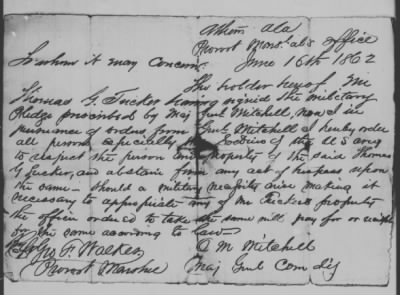 Athens Ala
Provost Marshal's office
June 16th 1862
To whom it may concern
The holder hereof Mr
Thomas G. Tucker having signed the military
Pledge prescribed by Maj Genl Mitchell, now I in
pursuance of orders from Genl Mitchell hereby order
all persons especially the Soldiers of the U S army
to respect the person and property of the said Thomas
G Tucker, and abstain from any act of trespass upon
the same - Should a military necessity arise making it
necessary to appropriate any of Mr Tuckers property
the officer ordered to take the same will pay for or receipt
for the same according to law
Geo F. Walker O M Mitchell
Provost Marshal Maj Genl Com d'g